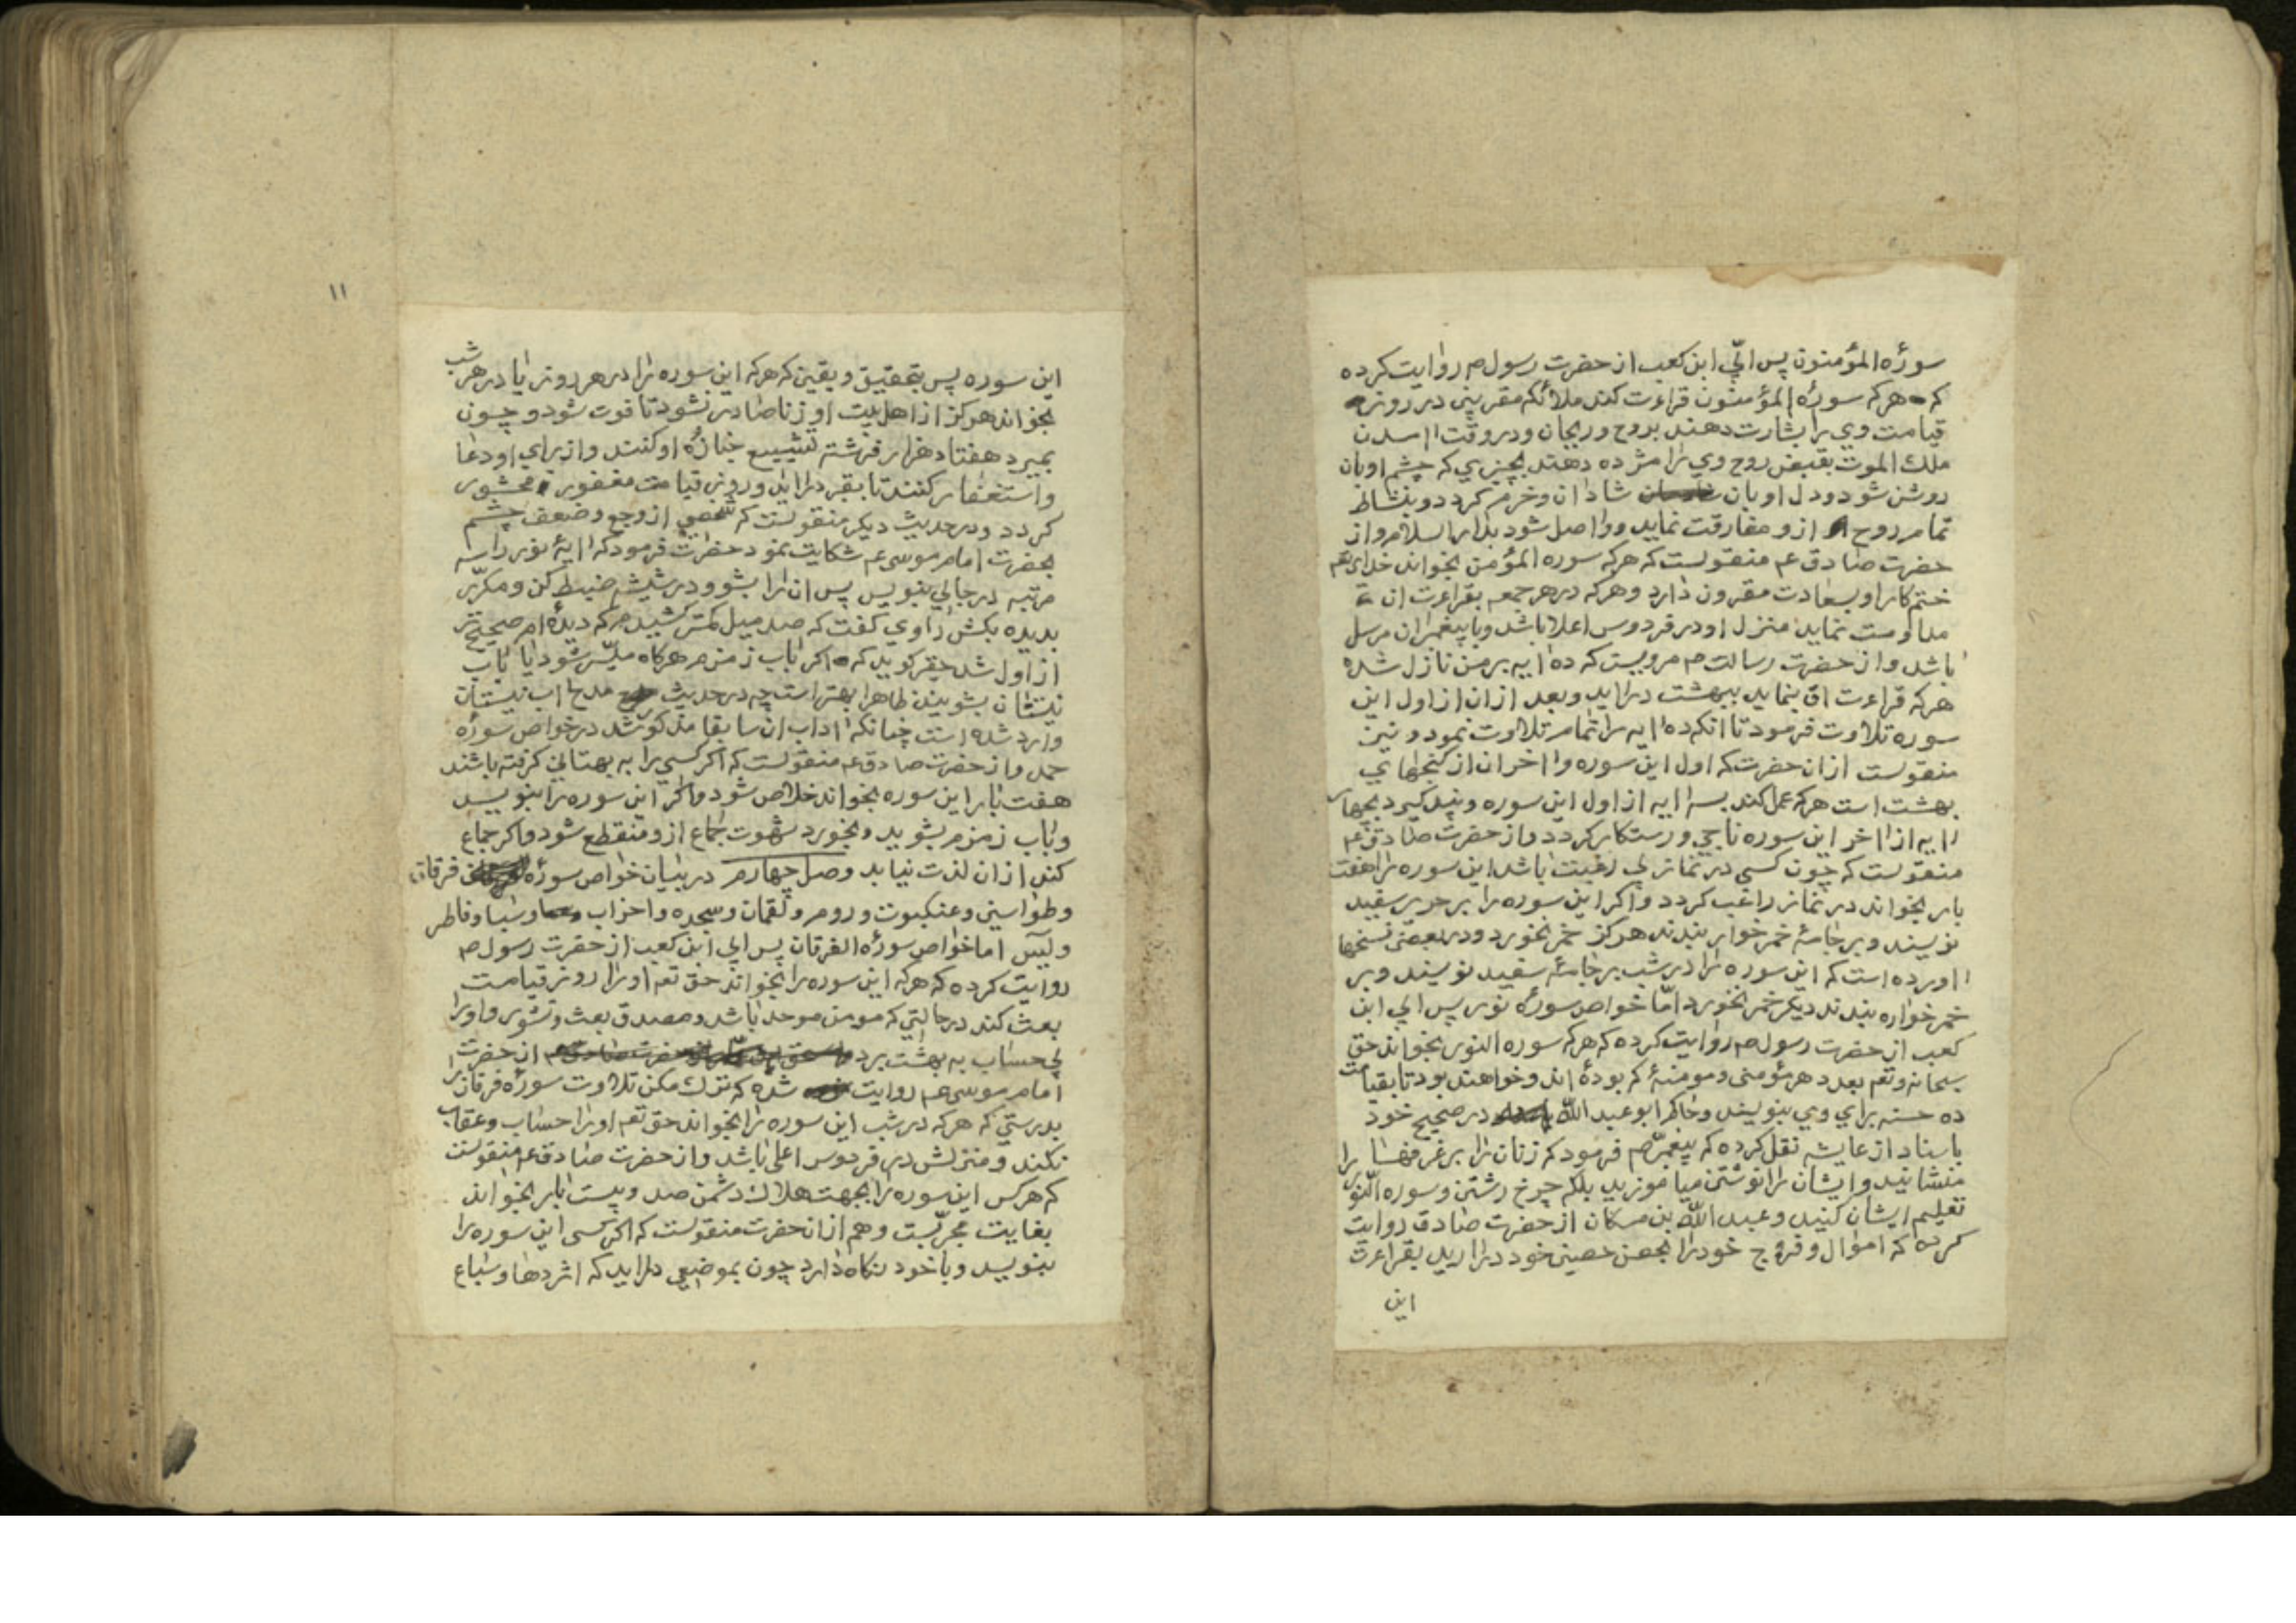 سورهٔ المؤمنون پس ابيّ ابن كعب از حضرت رسول ص روايت كرده
كه هركه سورهٔ المؤمنون قراءت كند ملائكهٔ مقربين در روز
قيامت وي را بشارت دهند بروح وريحان ودر وقت اامدن
ملك الموت بقبض روح وي را مژده دهند بچيزي كه چشم او بان
روشن شود ودل او بان شادان وخرم كردد وبنشاط
تمام روح از و مفارقت نمايد وواصل شود بدار السلام واز
حضرت صادق ع منقولست كه هركه سوره المؤمن بخواند خداي تعم
ختم كار او بسعادت مقرون دارد وهركه در هر جمعه بقراءت ان
مداومت نمايد منزل او در فردوس اعلا باشد وبا پيغمبران مرسل
باشد واز حضرت رسالت ص مرويست كه ده اايه بر من نازل شده
هركه قراءت ان بنمايد ببهشت درايد وبعد ازان از اول اين
سوره تلاوت فرمود تا انكه ده اايه را تمام تلاوت نمود ونيز
منقولست ازان حضرت كه اول اين سوره وااخر ان از كنجهاي
بهشت است هركه عمل كند بسه اايه از اول اين سوره وپند كيرد بچهار
اايه از ااخر اين سوره ناجي ورستكار كردد واز حضرت صادق ع
منقولست كه چون كسي در نماز بي رغبت باشد اين سوره را هفت
بار بخواند در نماز راغب كردد واكر اين سوره را بر حرير سفيد
نويسند وبر جامهٔ خمر خوار بندند هركز خمر نخورد ودر بعضى نسخها
ااورده است كه اين سوره را در شب بر جامهٔ سفيد نويسند وبر
خمر خواره بندند ديكر خمر نخورد امّا خواص سورهٔ نور پس ابي ابن
كعب از حضرت رسول ص روايت كرده كه هركه سوره النور بخواند حق
سبحانه وتعم بعدد هر مؤمنى ومومنهٔ كه بودهٔ اند وخواهند بود تا بقيامت
ده حسنه براي وي بنويسد وحاكم ابو عبد اللّه در صحيح خود
باسناد از عايشه نقل كرده كه پيغمبر ص فرمود كه زنان را بر غرفها
منشانيد وايشان را نوشتن مياموزيد بلكه چرخ رشتن وسوره النور را
تعليم ايشان كنيد وعبد اللّه بن مسكان از حضرت صادق روايت
كرده كه اموال وفروج خود را بحصن حصين خود دراريد بقراءت
اين
۱۱
اين سوره پس بتحقيق ويقين كه هركه اين سوره را در هر روز يا در هر شب
بخواند هركز از اهلبيت او زنا صادر نشود تا فوت شود وچون
بميرد هفتاد هزار فرشته تشييع جنازهٔ او كنند واز براي او دعا
واستغفار كنند تا بقبر درايد وروز قيامت مغفور محشور
كردد ودر حديث ديكر منقولست كه شخصي از وجع وضعف چشم
بحضرت امام موسى ع شكايت نمود حضرت فرمود كه اايهٔ نور را سه
مرتبه در جامي بنويس پس ان را بشو ودر شيشه ضبط كن ومكرّر
بديده بكش راوي كفت كه صد ميل كمتر كشيدم كه ديدهٔ ام صحيح تر
از اول شد حقير كويد كه اكر بااب زمزم هركاه ميسّر شود يا بااب
نيسان بشويند ظاهرا بهتر است چه در حديث مدح ااب نيسان
وارد شده است چنانكه ااداب ان سابقا مذكور شد در خواص سورهٔ
حمد واز حضرت صادق ع منقولست كه اكر كسي را به بهتاني كرفته باشند
هفت بار اين سوره بخواند خلاص شود واكر اين سوره را بنويسد
وبااب زمزم بشويد وبخورد شهوت جماع ازو منقطع شود واكر جماع
كند ازان لذت نيابد وصل چهارم در بيان خواص سورهٔ فرقان
وطواسين وعنكبوت وروم ولقمان وسجده واحزاب وسبا وفاطر
ويس اما خواص سورهٔ الفرقان پس ابي ابن كعب از حضرت رسول ص
روايت كرده كه هركه اين سوره را بخواند حق تعم او را روز قيامت
بعث كند در حالتي كه مومن موحد باشد ومصدق بعث ونشور واو را
بي حساب به بهشت برد از حضرت
امام موسى ع روايت شده كه ترك مكن تلاوت سورهٔ فرقان را
بدرستي كه هركه در شب اين سوره را بخواند حق تعم او را حساب وعقاب
نكند ومنزلش در فردوس اعلى باشد واز حضرت صادق ع منقولست
كه هركس اين سوره را بجهت هلاك دشمن صد وبيست بار بخواند
بغايت مجرّبست وهم ازانحضرت منقولست كه اكر كسى اين سوره را
بنويسد وبا خود نكاه دارد چون بموضعي درايد كه اژدها وسباع